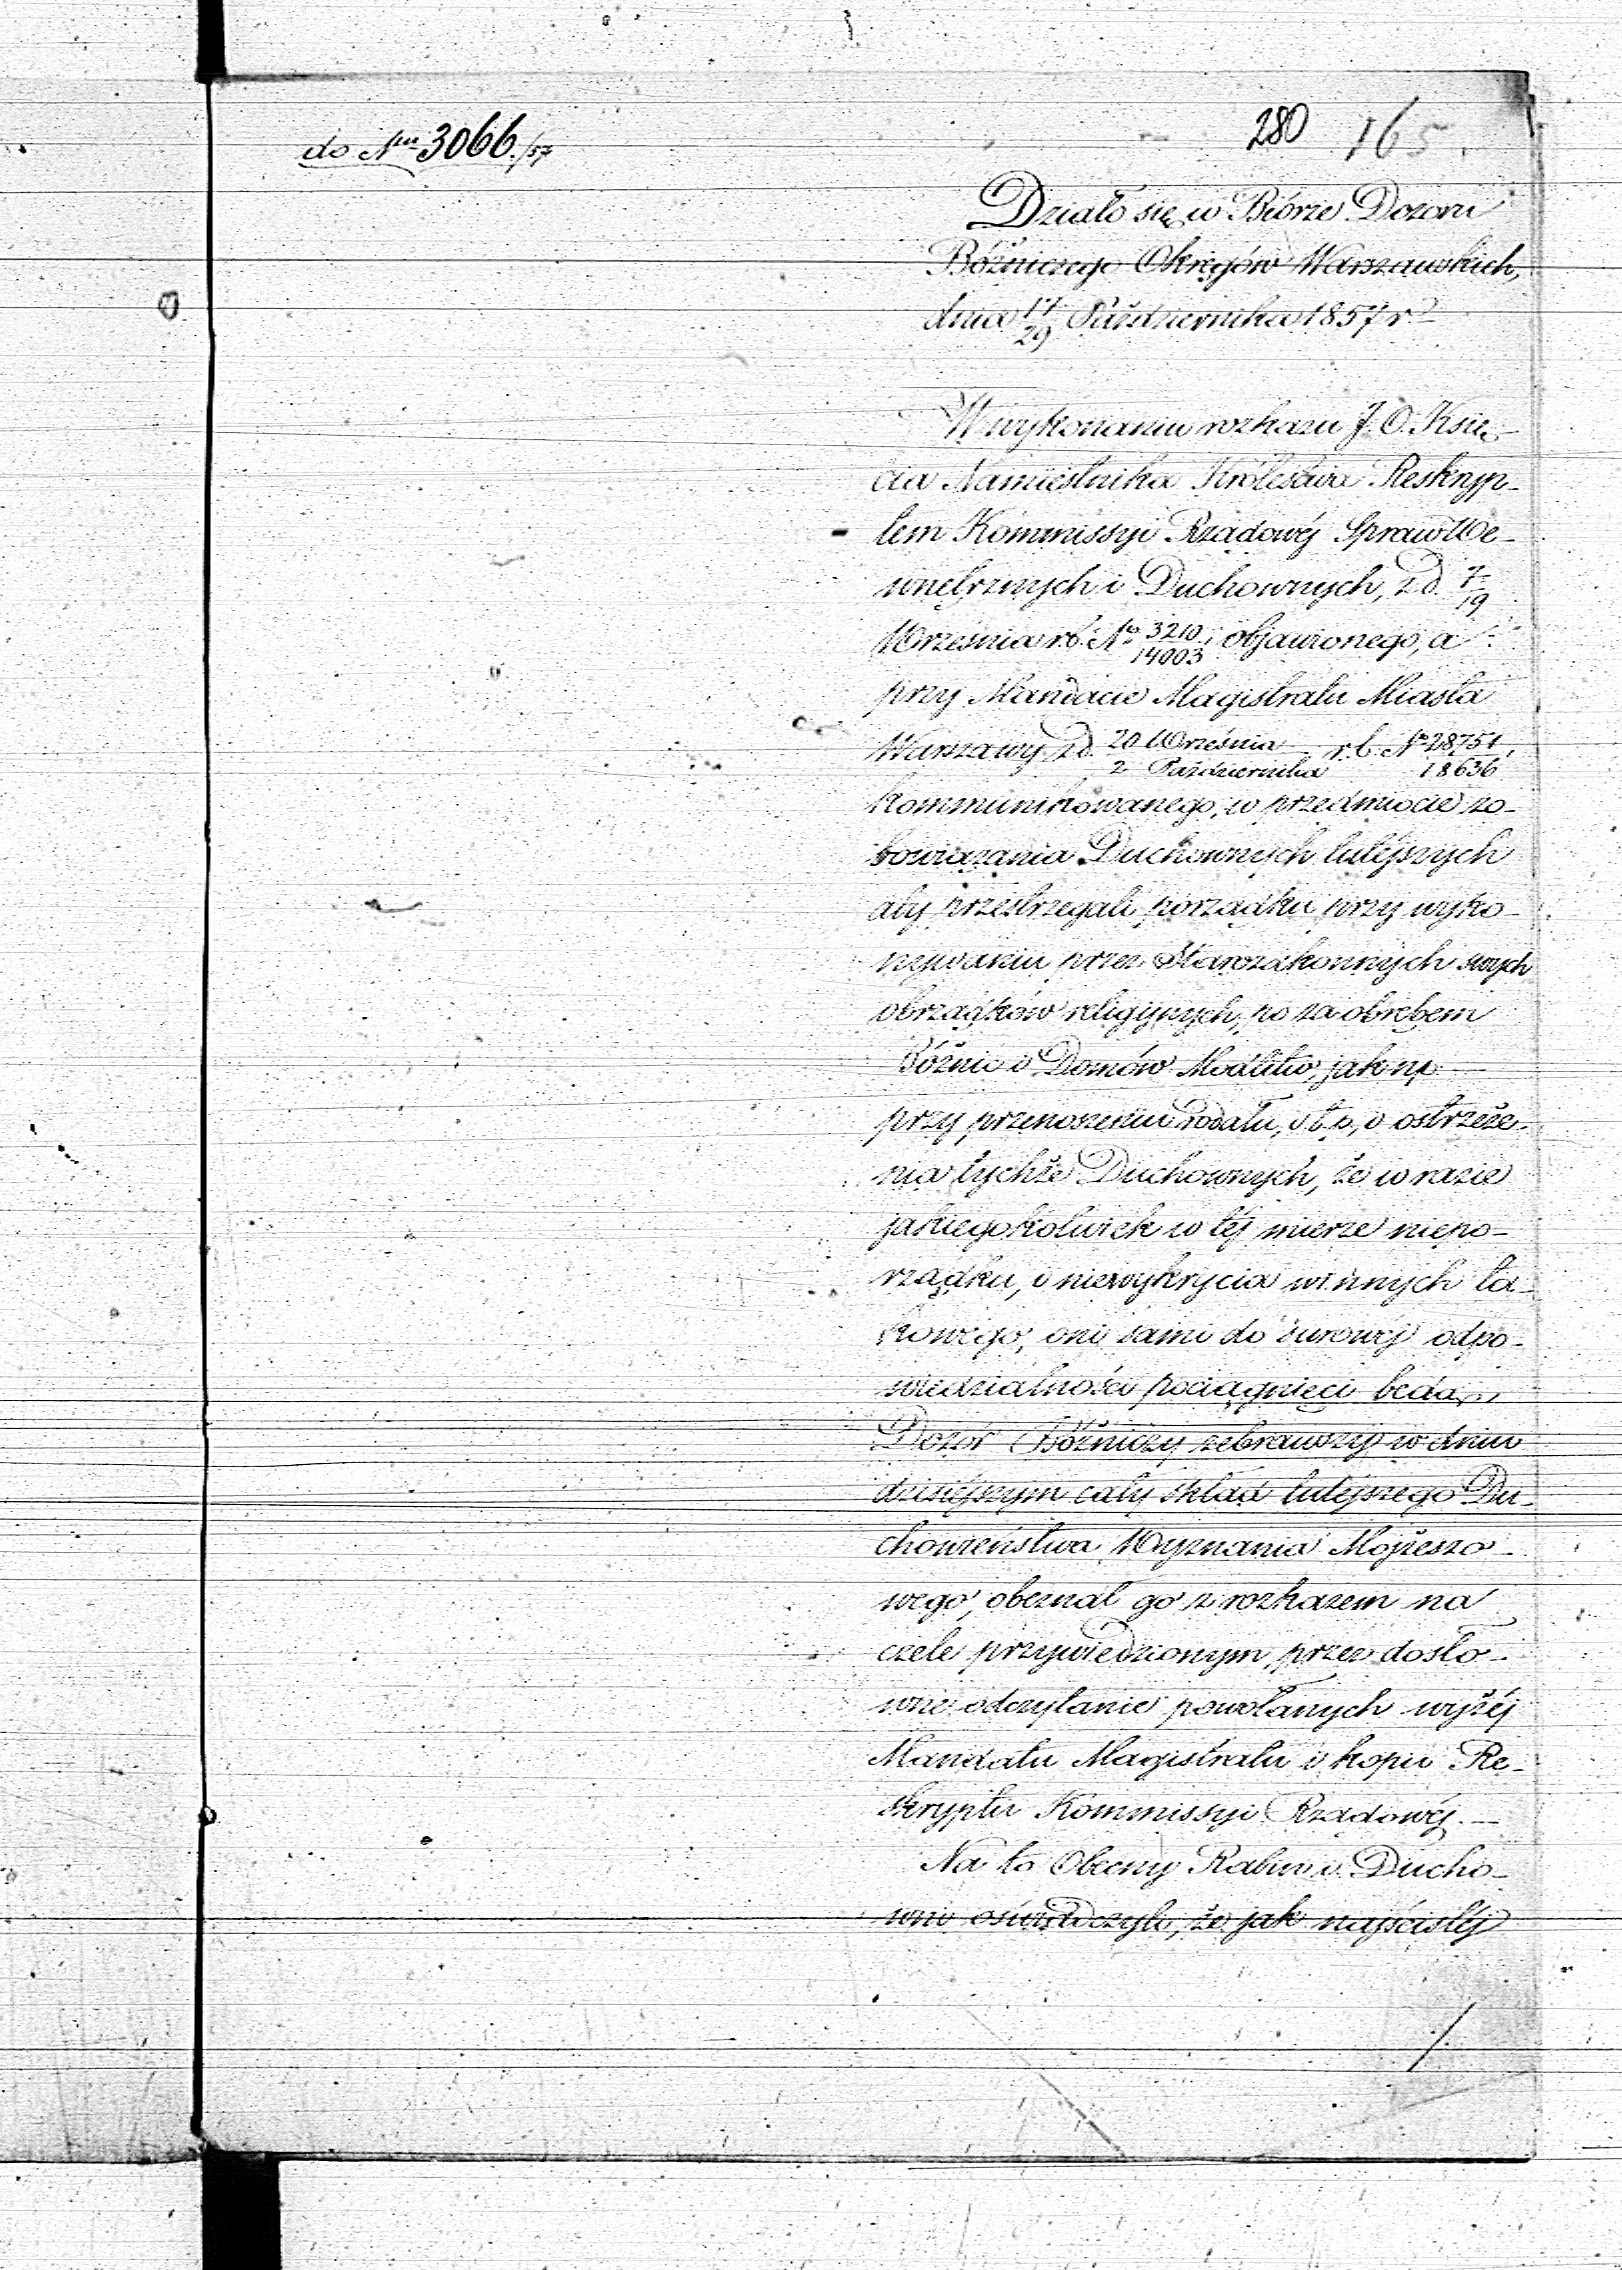 do Nru 3066./57
280 165.
Działo się w Biórze Dozoru
Bóźniczego Okręgów Warszawskich,
dnia 17/29 Października 1857 r.
W wykonaniu rozkazu J. O. Księ-
cia Namiestnika Królestwa Reskryp-
tem Kommissyi Rządowéj Spraw We-
wnętrznych i Duchownych, z d. 7/19
Września r.b. No 3210/14003 objawionego, a
przy Mandacie Magistratu Miasta
Warszawy z d. 20 Września/2 Października r.b. No 28751/18636,
kommunikowanego, w przedmiocie zo-
bowiązania Duchownych tutéjszych
aby przestrzegali porządku przy wyko-
nywaniu przez Starozakonnych swych
obrządków religijnych, po za obrębem
Bóżnic i Domów Modlitw, jak np
przy przenoszeniu rodału, i t.p, i ostrzeże-
nia tychże Duchownych, że w razie
jakiegokolwiek w téj mierze niepo-
rządku, i niewykrycia winnych ta-
kowego, oni sami do surowéj odpo-
wiedzialności pociągnięci będą,
Dozór Bóżniczy zebrawszy w dniu
dzisiéjszym cały skład tutéjszego Du-
chowieństwa Wyznania Mojżeszo-
wego, obeznał go z rozkazem na
czele przywiedzionym, przez dosło-
wne odczytanie powołanych wyżéj
Mandatu Magistratu i kopii Re-
skryptu Kommissyi Rządowéj. —
Na to Obecny Rabin i Ducho-
wni oświadczyli, że jak najściśléj